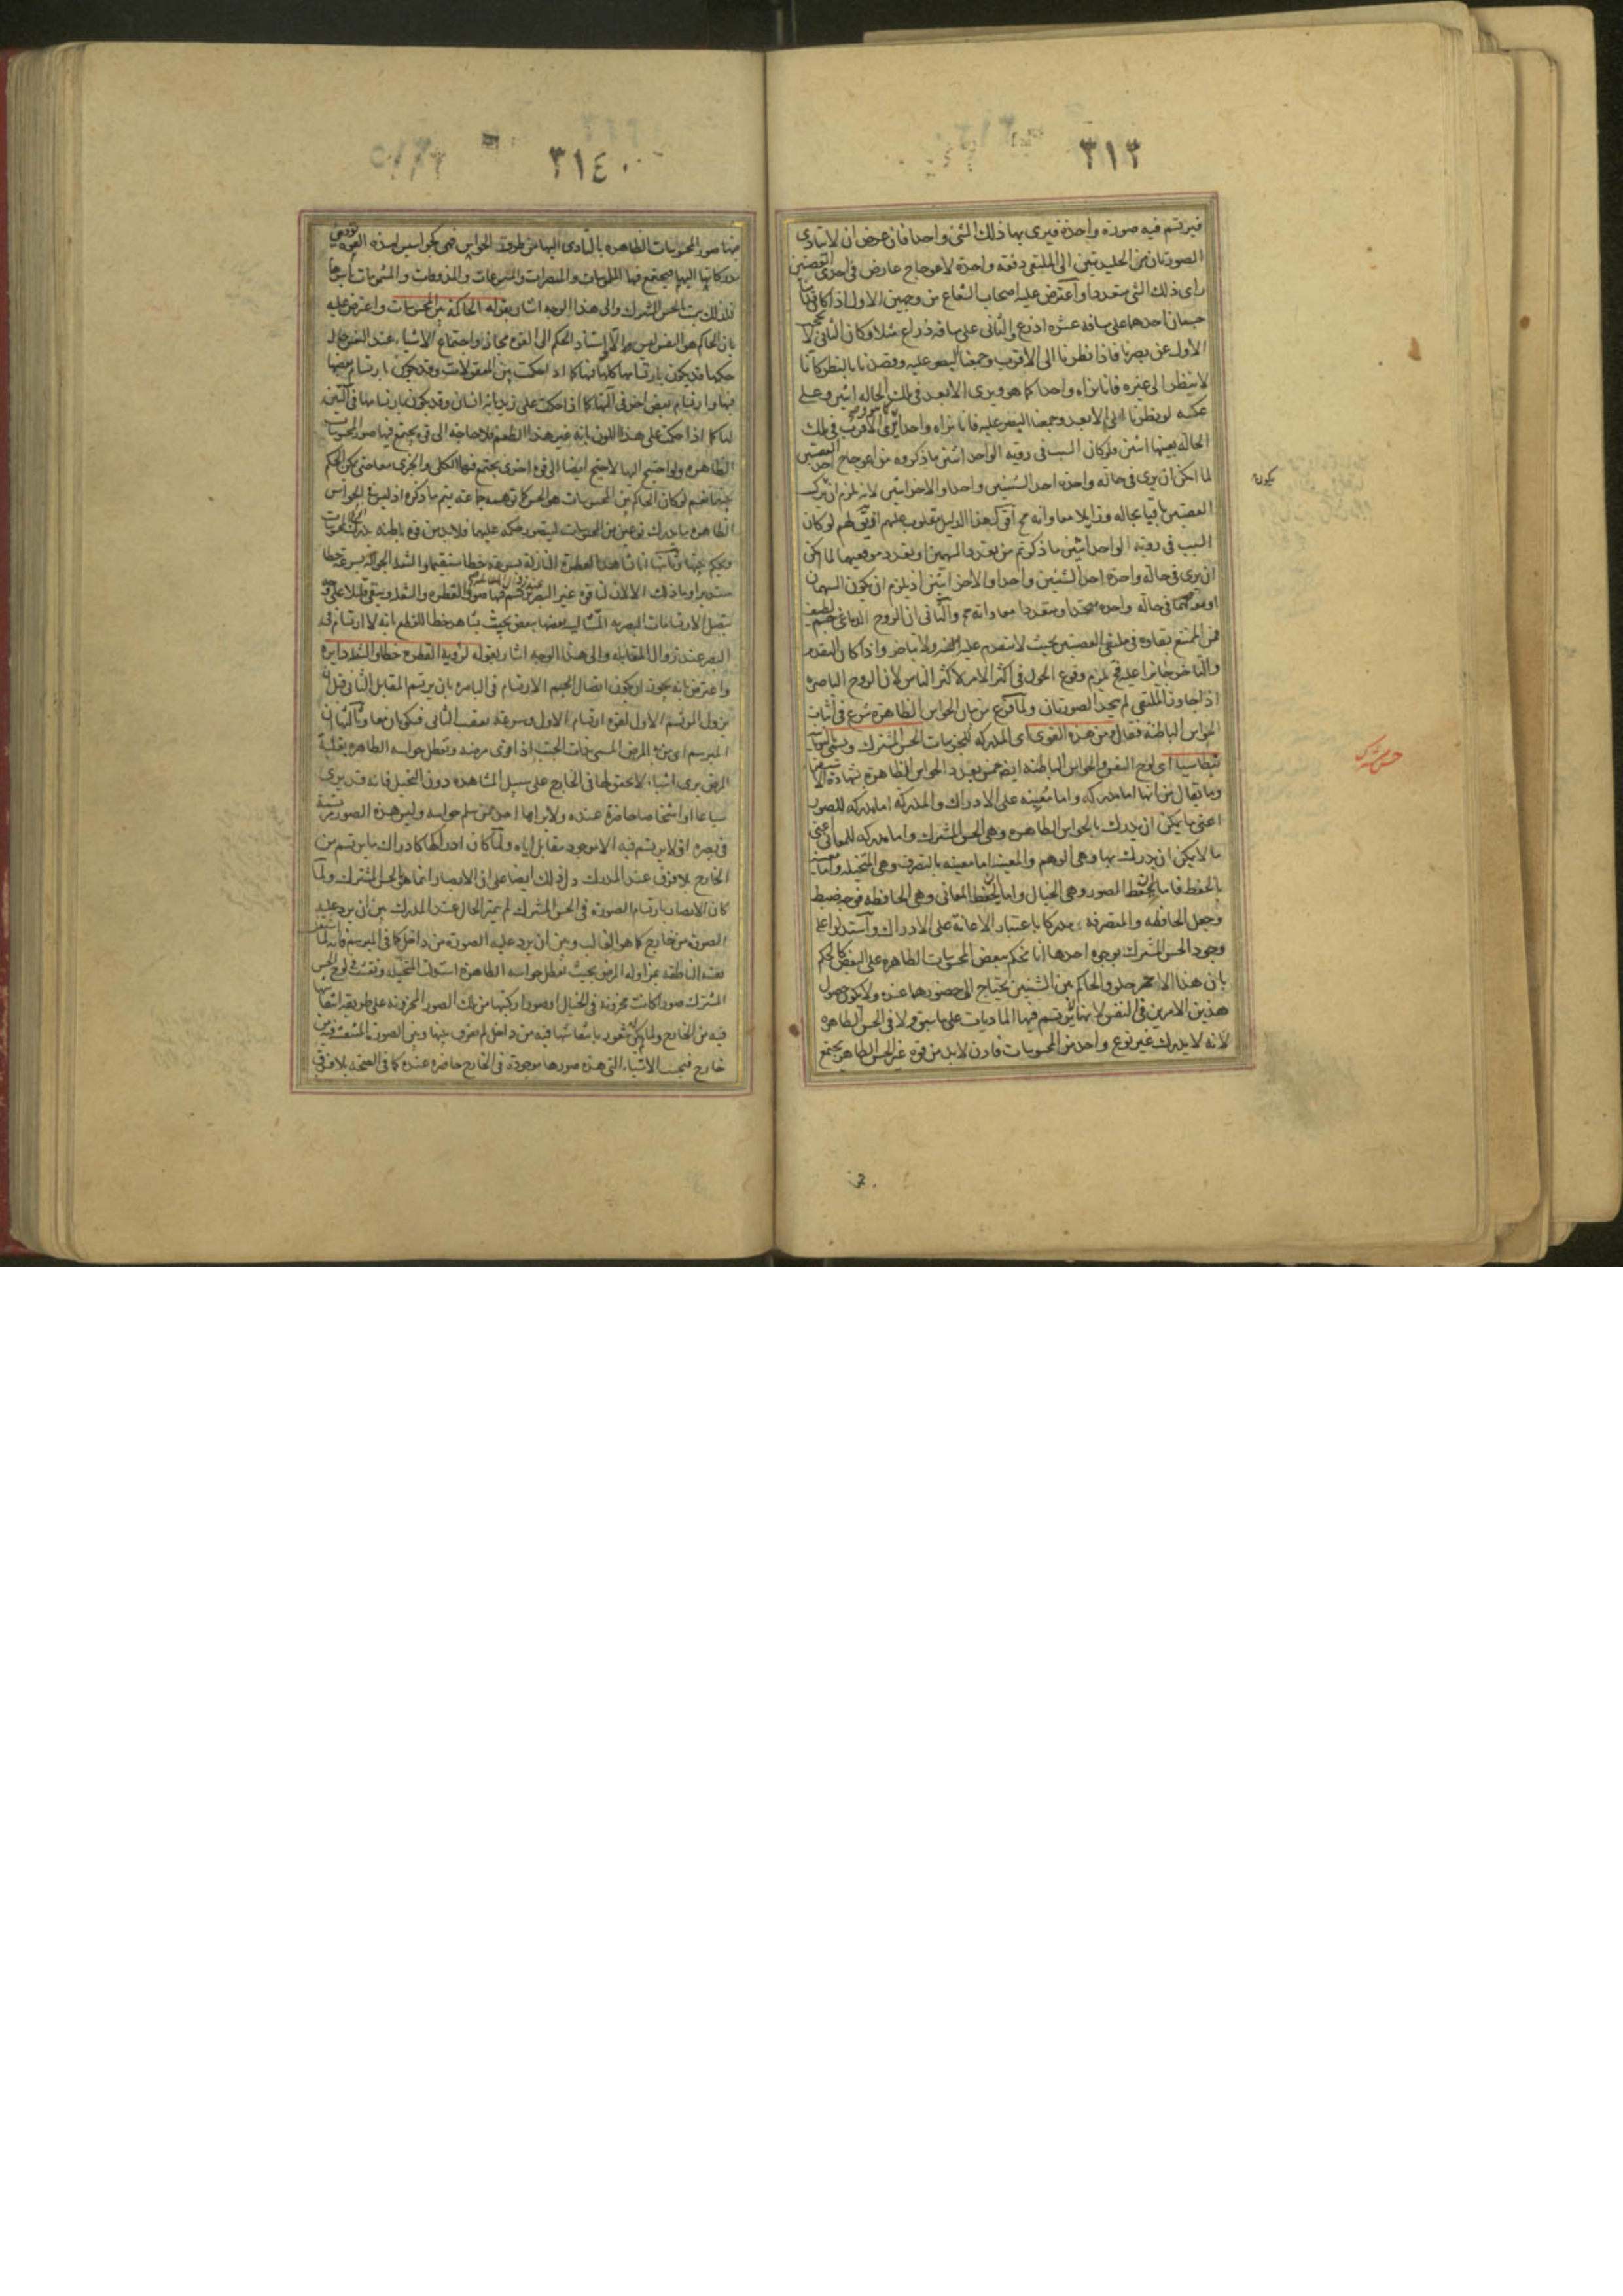 ٣١٣
فيرتسم فيه صورة واحدة فيرى بها ذلك الشئ واحدا فان عرض ان لا تتادى
الصورتان من الجليديتين الى الملتقى دفعة واحدة لاعوجاج عارض فى احدى العصبتين
راى ذلك الشئ متعددا واعترض عليه اصحاب الشعاع من وجهين الاول اذا كان
جسمان احدهما على مسافة عشرة اذرع والثانى على مسافة ذراع مثلا وكان الثانى لا يحجب
الاول عن بصرنا فاذا نظرنا الى الاقرب وجمعنا البصر عليه وقصدنا بالنظر كانا
لا ننظر الى غيره فانا نراه واحدا كما هو ويرى الابعد فى تلك الحالة اثنين وعلى
عكسه لو نظرنا الى الابعد وجمعنا البصر عليه فانا نراه واحدا ويرى الاقرب فى تلك
الحالة بعينها اثنين فلو كان السبب فى رؤية الواحد اثنين ما ذكروه من اعوجاج احدى العصبتين
لما امكن ان يرى فى حالة واحدة احد الشيئين واحدا والاخر اثنين لانه يلزم ان
يكون
العصبتين باقيا بحاله وزايلا معا وانه مح اقول هذا الدليل مقلوب عليهم اذ يق لهم لو كان
السبب فى رؤية الواحد اثنين ما ذكرتم من تعدد السهمين او تعدد موقعيهما لما امكن
ان يرى فى حالة واحدة احد الشيئين واحدا والاخر اثنين اذ يلزم ان يكون السهمان
او موقعهما فى حالة واحدة متحدا ومتعددا معا وانه مح والثانى ان الروح الدماغى جسم لطيف
فمن الممتنع بقاوه فى ملتقى العصبتين بحيث لا يتقدم عليه ولا يتاخر واذا كان التقدم
والتاخر جايزا عليه فح يلزم وقوع الحول فى اكثر الامر لاكثر الناس لان الروح الباصرة
اذا تجاوز الملتقى لم يتحد الصورتان ولما فرغ من بيان الحواس الظاهرة شرع فى اثبات
الحواس الباطنة فقال ومن هذه القوى اى المدركة للجزئيات الحس المشترك ويسمى
بنطاسيا اى لوح النفس والحواس الباطنة ايضا خمس بعدد الحواس الظاهرة بشهادة الاستقراء
حس مشترك
وما يقال من انها اما مدركة واما معينة على الادراك والمدركة اما مدركة للصور
اعنى ما يمكن ان يدرك بالحواس الظاهرة وهى الحس المشترك واما مدركة للمعانى اعنى
ما لا يمكن ان يدرك بها وهى الوهم والمعينة اما معينة بالتصرف وهى المتخيلة واما معينة
بالحفظ فاما لحفظ الصور وهى الخيال واما لحفظ المعانى وهى الحافظة فوجه ضبط
وجعل الحافظة والمتصرفة مدركا باعتبار الاعانة على الادراك واستدلوا على
وجود الحس المشترك بوجوه احدها انا نحكم ببعض المحسوسات الظاهرة على البعض كالحكم
بان هذا الاحمر حلو والحاكم بين الشيئين يحتاج الى حضورهما عنده ولا يكون حصول
هذين الامرين فى النفس لانها لا يرتسم فيها الماديات على ما سبق ولا فى الحس الظاهرة
لانه لا يدرك غير نوع واحد من المحسوسات فاذن لابد من قوة غير الحس الظاهر يجتمع
٣١٤
فيها صور المحسوسات الظاهرة بالتادى اليها من طرق الحواس فهى كجواسيس لهذه القوة تودى
مدركاتها اليها فيجتمع فيها الملموسات والمبصرات والمسموعات والمذوقات والمشمومات باسرها
فلذلك سميت الحس المشترك والى هذا الوجه اشار بقوله الحاكمة بين المحسوسات واعترض عليه
بان الحاكم هو النفس ليس الا واسناد الحكم الى القوة مجاز واجتماع الاشياء عند النفس حال
حكمها قد يكون بارتسامها كلها فيها كما اذا حكمت بين المعقولات وقد يكون بارتسام بعضها
فيها وارتسام بعض اخر فى آلتها كما اذا حكمت على زيد بانه انسان وقد يكون بارتسامها فى آلتين
لها كما اذا حكمت على هذا اللون بانه غير هذا الطعم فلا حاجة الى قوة يجتمع فيها صور المحسوسات
الظاهرة ولو احتيج اليها لاحتيج ايضا الى قوة اخرى يجتمع فيها الكلى والجزئى معا حتى يمكن الحكم
بينهما نعم لو كان الحاكم بين المحسوسات هو الحس كما توهمه جماعة يتم ما ذكره اذ ليس فى الحواس
الظاهرة ما يدرك نوعين من المحسوسات ليتصور حكمه عليهما فلابد من قوة باطنة يدرك
ويحكم بينهما وثانيها انا نشاهد القطرة النازلة بسرعة خطا مستقيما والشعلة الجوالة بسرعة خطا
مستديرا وما ذلك الا لان لنا قوة غير البصر يرتسم فيها صورة القطرة والشعلة ويبقى قليلا على
يتصل الارتسامات البصرية المتتالية بعضها ببعض بحيث يشاهد خطا للقطع بانه لا ارتسام فى
البصر عند زوال المقابلة والى هذا الوجه اشار بقوله لرؤية القطرة خطا والشعلة دايرة
واعترض بانه يجوز ان يكون اتصال الارتسام فى الباصرة بان يرتسم المقابل الثانى قبل ان
يزول المرتسم الاول لقوة ارتسام الاول وسرعة تعقب الثانى فيكونان معا وثالثها ان
المبرسم اى من به المرض المسمى بذات الجنب اذا قوى مرضه وتعطل حواسه الظاهرة بغلبة
المرض يرى اشياء لا تحقق لها فى الخارج على سبيل المشاهدة دون التخيل فانه قد يرى
سباعا او اشخاصا حاضرة عنده ولا يراها احد ممن سلم حواسه وليس هذه الصور مرتسمة
فى بصره اذ لا يرتسم فيه الا موجود مقابل اياه ولما كان ادراكها كادراك ما يرتسم من
الخارج بلا فرق عند المدرك دل ذلك ايضا على ان الابصار انما هو بالحس المشترك ولما
كان الابصار بارتسام الصورة فى الحس المشترك لم يتميز الحال عند المدرك بين ان يرد عليه
الصورة من خارج كما هو الغالب وبين ان يرد عليه الصورة من داخل كما فى المبرسم فانه لما اشتغل
نفسه الناطقة بمزاولة المرض بحيث تعطل حواسه الظاهرة استولت المتخيلة ونقشت فى لوح الحس
المشترك صورا كانت مخزونة فى الخيال او صورا ركبتها من تلك الصور المخزونة على طريقة انتقاشها
فيه من الخارج ولما لم يكن شعور بانتقاشها فيه من داخل لم يفرق بينها وبين الصور المنتقشة فيه من
خارج فيحسب الاشياء التى هذه صورها موجودة فى الخارج حاضرة عنده كما فى الصحة بلا فرق